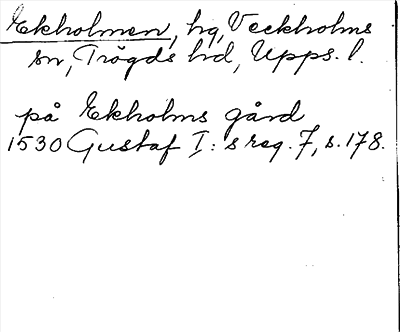 Ekholmen, hg, Veckholms
sn, Trögds hd, Upps. l.
på Ekholms gård
1530 Gustaf I: s reg. 7, s. 178.